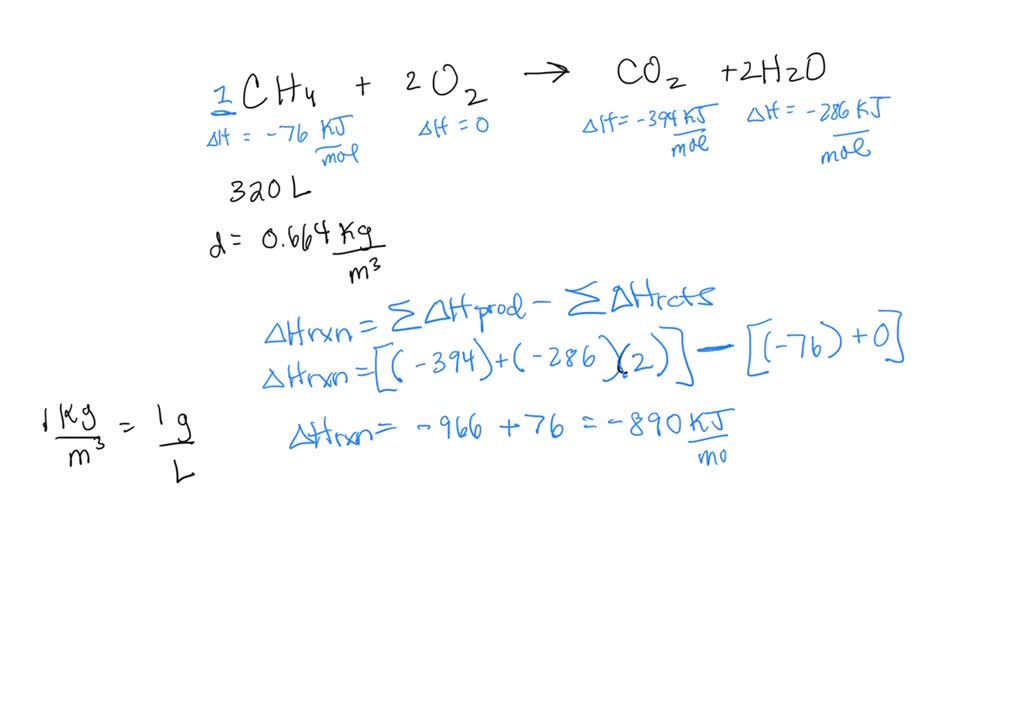 1CH₄ + 2O₂ → CO₂ +2H₂O
ΔH = -76 KJ/mol ΔH = 0 ΔH = -394 KJ/mol ΔH = -286 KJ/mol
320 L
d = 0.664 Kg/m³
ΔHrxn = ΣΔHprod - ΣΔHrcts
ΔHrxn = [(-394)+(-286)(2)] - [(-76)+0]
ΔHrxn = -966 +76 = -890 KJ/mo
1 Kg/m³ = 1 g/L